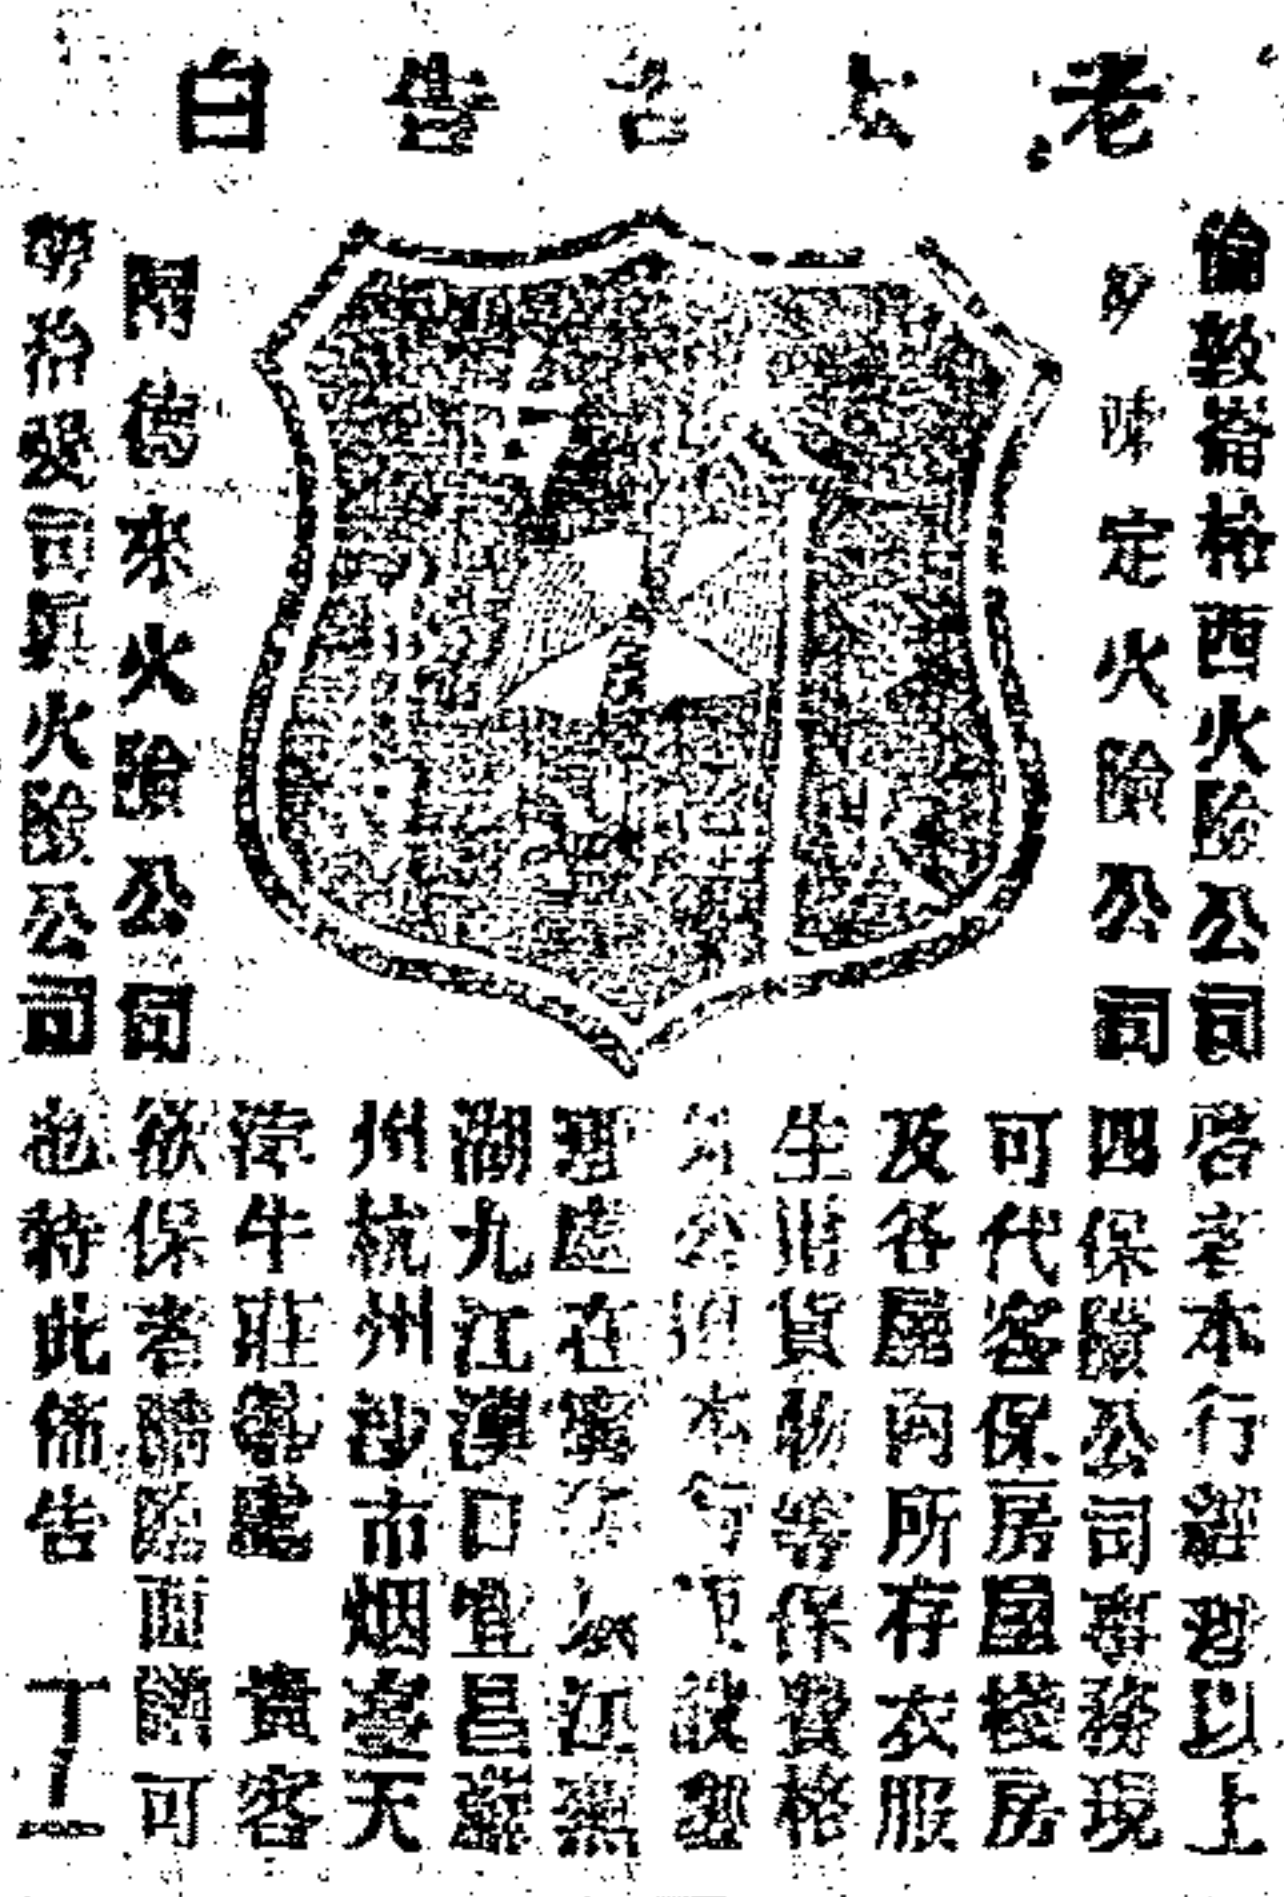 老告白
倫敦崙格西火險公司
定火險公司
來火險公司
火險公司
啓者本行經理以上
四保險公司事務現
可代客保房屋棧房
及各屋內所存衣服
生財貨物等保費格
外公道本行設
理處在江蕪
湖九江漢口宜昌蘇
州杭州沙市烟臺天
津牛莊等處 貴客
欲保者請臨面議可
也特此佈告